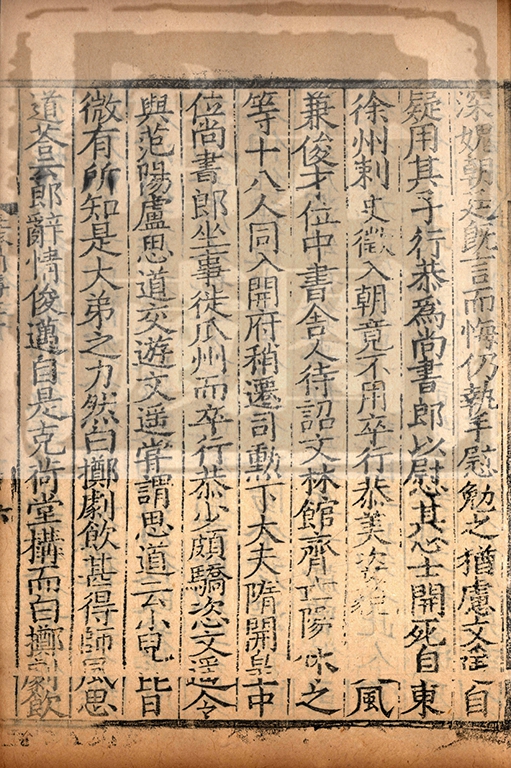 深媿朝廷既言而悔仍執手慰勉之猶慮文遙自
疑用其子行恭爲尚書郎以慰其心士開死自東
徐州刺史徵入朝竟不用卒行恭美姿貌風
兼俊才位中書舍人待詔文林館齊亡陽休之
等十八人同入開府稍遷司勳下大夫隋開皇中
位尚書郎坐事徙瓜州而卒行恭少頗驕恣文遥令
與范陽盧思道交遊文遥甞謂思道云小兒比日
微有所知是大弟之力然白擲劇飲甚得師風思
道荅云郎辭情俊邁自是克荷堂構而白擲劇飲